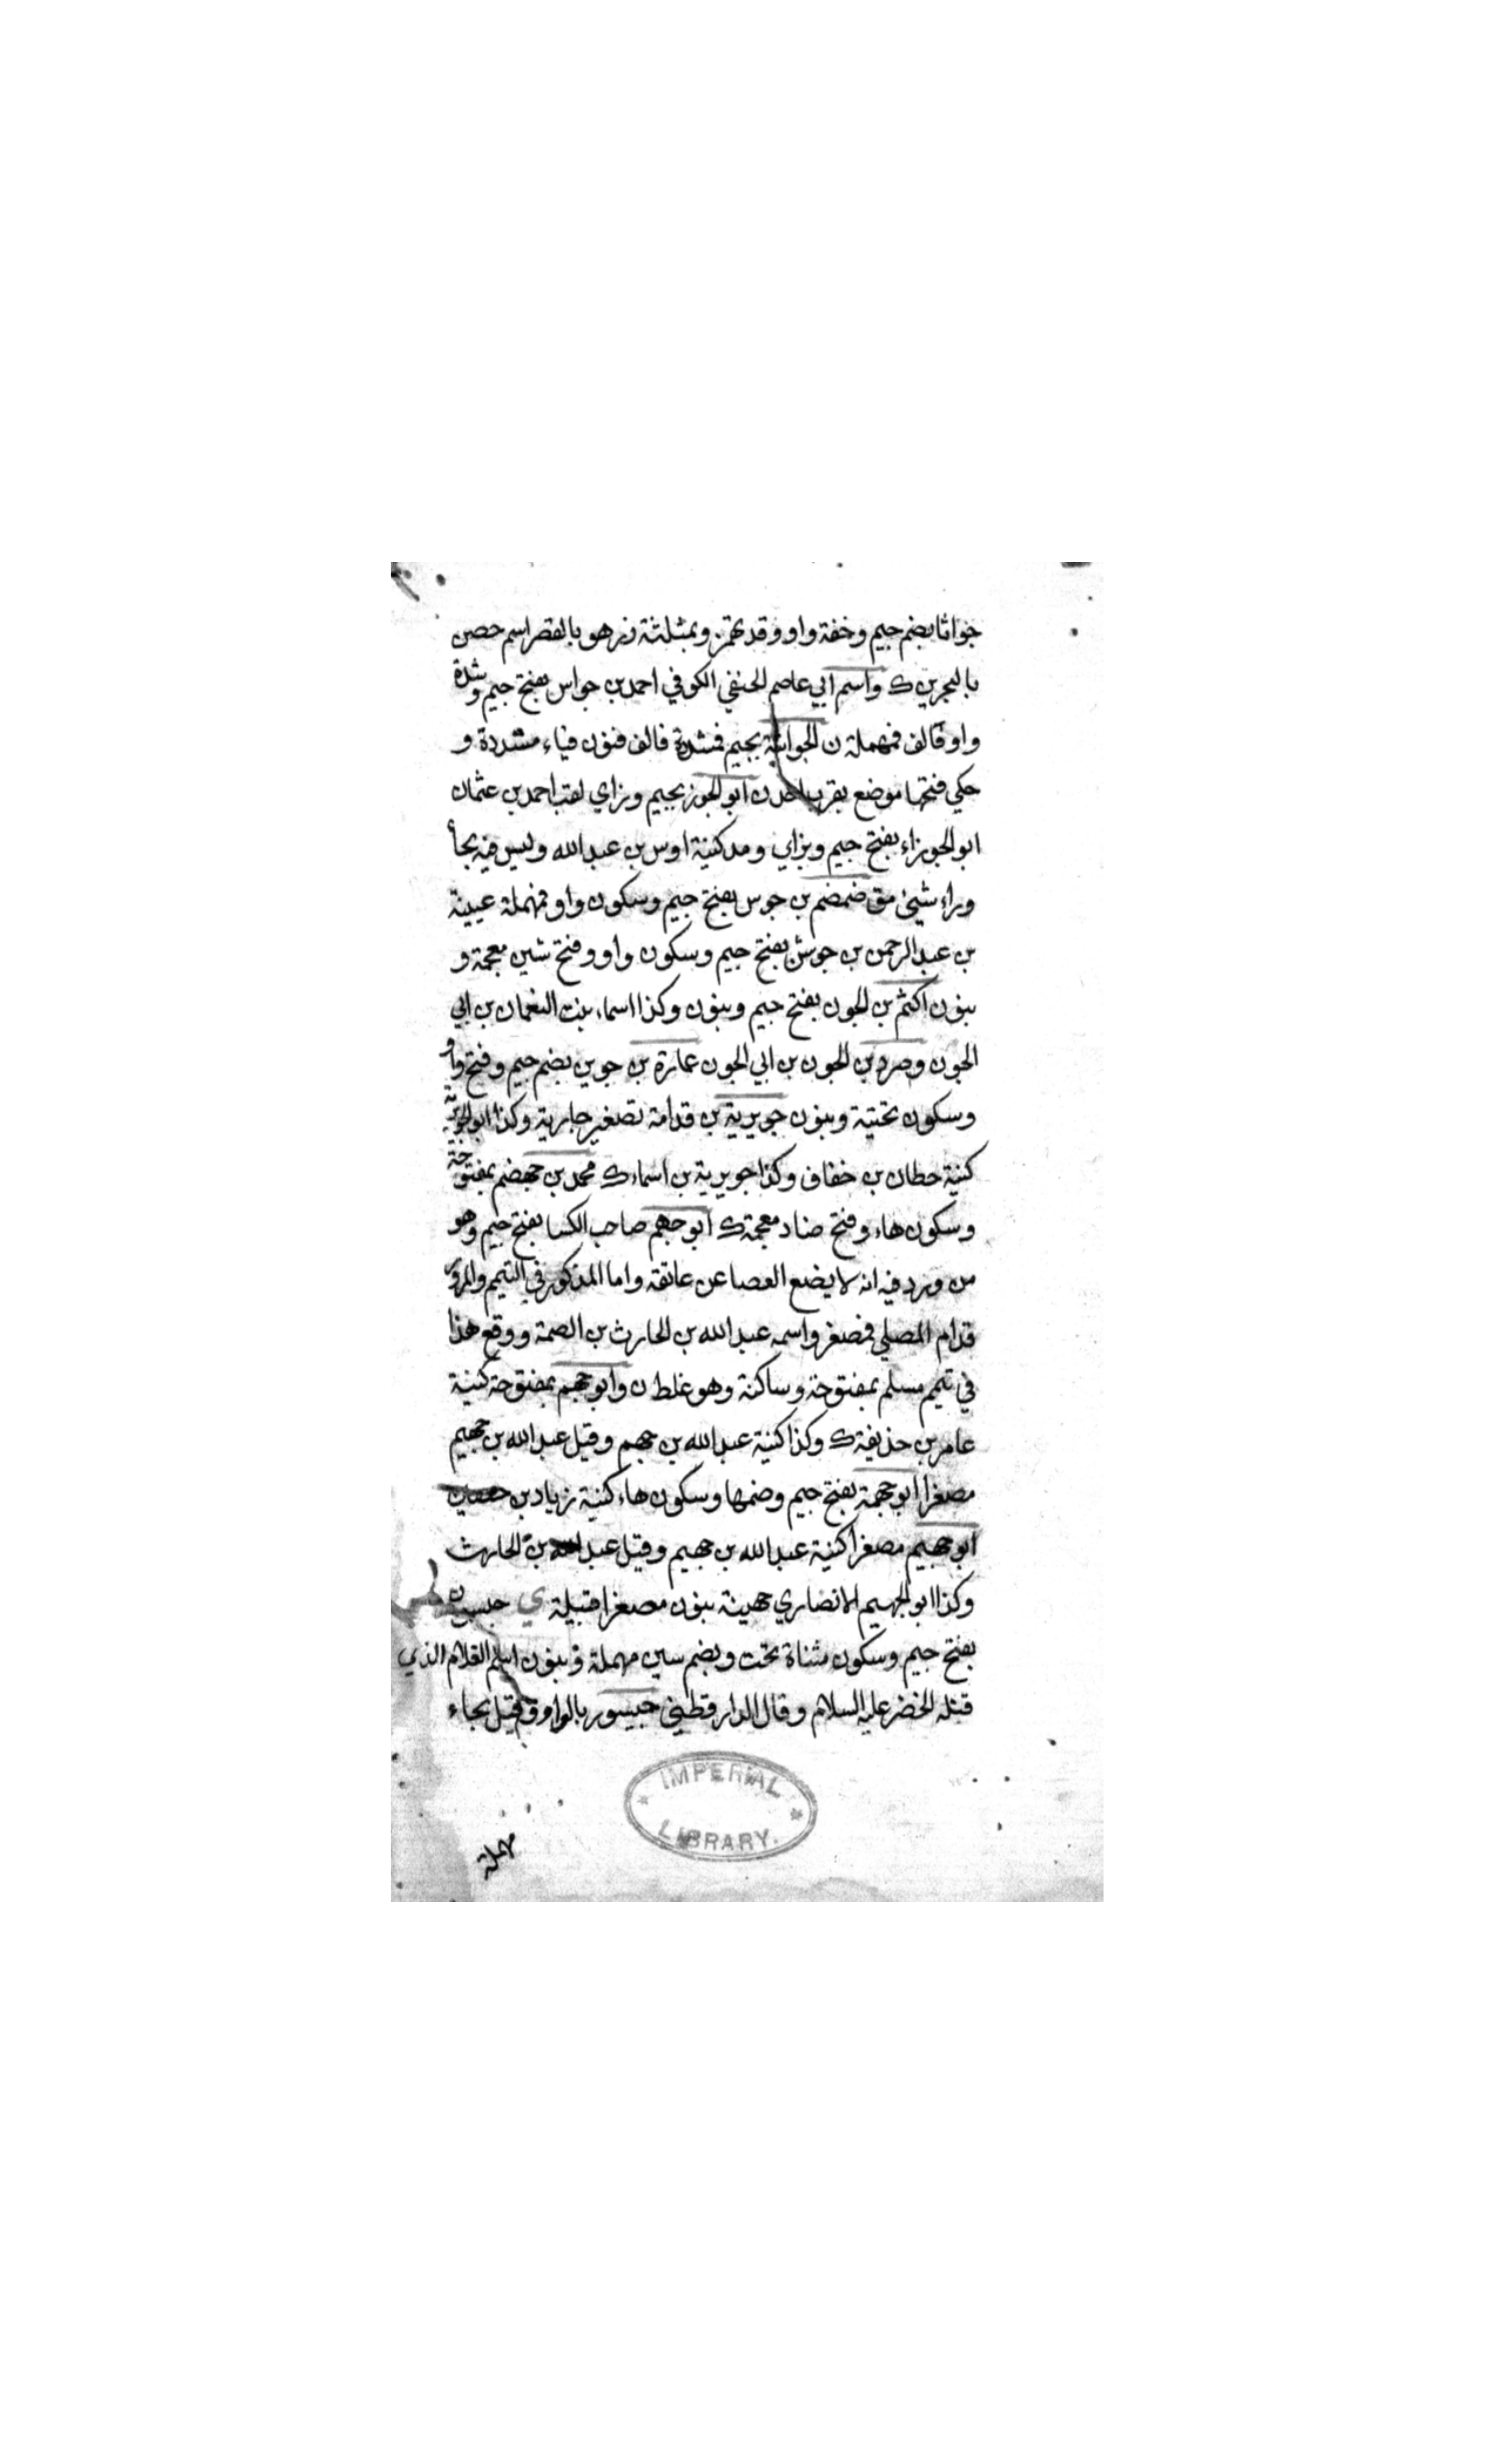 جواثا بضم جيم وخفة واو وقد تهمز وبمثلثة زر هو بالقصر اسم حصن
بالبحرين ك واسم ابي عاصم الحنفي الكوفي احمد بن جواس بفتح جيم وشدة
واو فالف فمهملة ن الجوانية بجيم فشدة فالف فنون فياء مشددة و
حكي فتحها موضع بقرب احد ن ابو الجوز بجيم وزاي لقب احمد بن عثمان
ابو الجوزاء بفتح جيم وبزاي ومد كنية اوس بن عبد الله وليس فيه بحاء
وراء شيئ مق ضمضم بن جوس بفتح جيم وسكون واو فمهملة عيينة
بن عبد الرحمن بن جوشن بفتح جيم وسكون واو وفتح شين معجمة و
بنون اكثم بن الجون بفتح جيم وبنون وكذا اسماء بنت النعمان بن ابي
الجون وصرد بن الجون بن ابي الجون عمارة بن جوين بضم جيم وفتح واو
وسكون تحتية وبنون جويرية بن قدامة تصغير جارية وكذا ابو الجويرية
كنية حطان بن خفاف وكذا جويرية بن اسماء ك محمد بن جهضم بمفتوحة
وسكون هاء وفتح ضاد معجمة ك ابو جهم صاحب الكسا بفتح جيم وهو
من ورد فيه انه لا يضع العصا عن عاتقه واما المذكور في التيمم والمرور
قدام المصلي فمصغر واسمه عبد الله بن الحارث بن الصمة ووقع هذا
في تيمم مسلم بمفتوحة وساكنة وهو غلط ن وابو جهم بمفتوحة كنية
عامر بن حذيفة ك وكذا كنية عبد الله بن جهم وقيل عبد الله بن جهيم
مصغرا ابو جهمة بفتح جيم وضمها وسكون هاء كنية زياد بن حصين
ابو جهيم مصغرا كنية عبد الله بن جهيم وقيل عبد الله بن الحارث
وكذا ابو الجهيم الانصاري جهينة بنون مصغرا قبيلة ي جيسون
بفتح جيم وسكون مثناة تحت وبضم سين مهملة وبنون اسم الغلام الذي
قتله الخضر عليه السلام وقال الدارقطني جيسور بالواو وقيل بحاء
مهملة
IMPERIAL
LIBRARY.